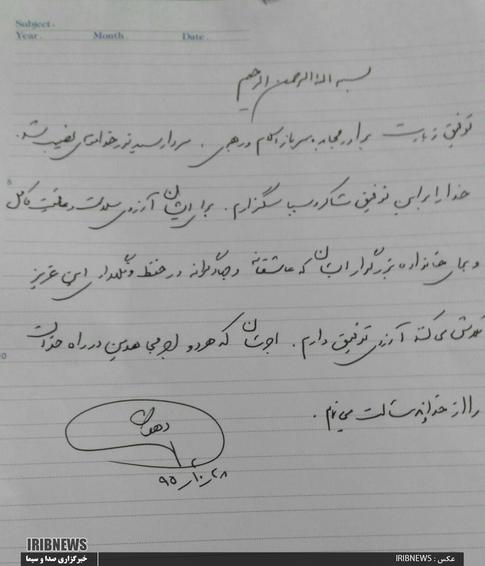 Subject:
Year. Month. Date.
بسم الله الرحمن الرحیم
توفیق زیارت برادر مجاهد، سرباز اسلام و رهبری، سردار سید نورخدا موسوی نصیب شد.
خدا را بر این توفیق شاکر و سپاسگزارم. برای ایشان آرزوی سلامت و عافیت کامل
و برای خانواده بزرگوار ایشان که عاشقانه و جهادگرانه در حفظ و نگهداری این عزیز
تلاش می کنند آرزوی توفیق دارم. اجرشان که هر دو اجر مجاهدین در راه خداست
را از خداوند مسئلت می نمایم.
دهقان
۹۵/۱۰/۲۸
IRIBNEWS
خبرگزاری صدا و سیما
عکس : IRIBNEWS